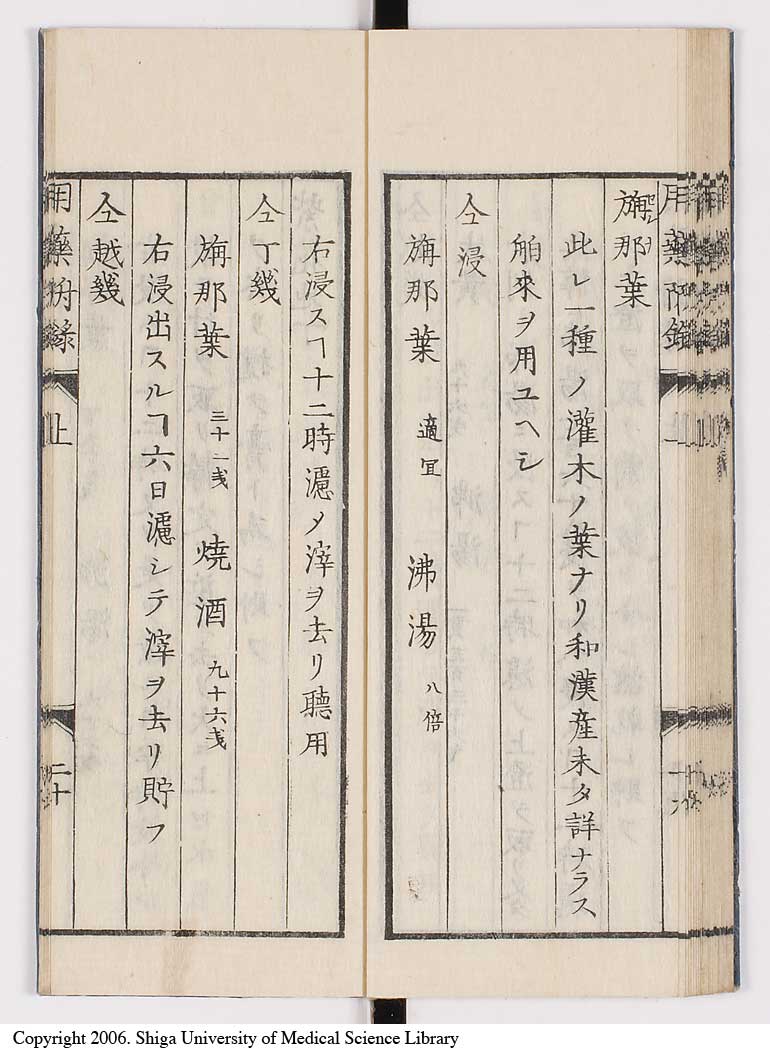 旃那葉
此レ一種ノ灌木ノ葉ナリ和漢産未タ詳ナラス
舶來ヲ用ユヘシ
仝浸
旃那葉 適宜 沸湯 八倍
右浸スヿ十二時濾メ滓ヲ去リ聽用
仝丁幾
旃那葉 三十二戔 焼酒 九十六戔
右浸出スルヿ六日濾シテ滓ヲ去リ貯フ
仝越幾
用藥附録 上 二十
Copyright 2006. Shiga University of Medical Science Library